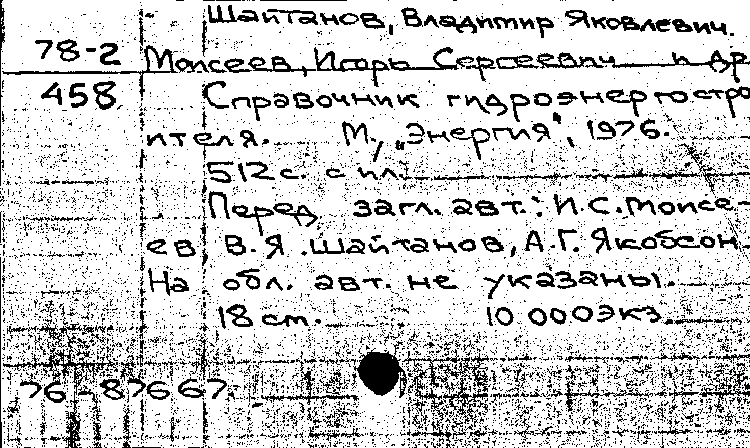 Шайтанов, Владимир Яковлевич.
78-2 Моисеев, Игорь Сергеевич и др
458 Справочник гидроэнергостро
ителя. М., „Энергия", 1976.
512 с. с ил.
Перед загл. авт.: И.С. Моисе-
ев, В.Я. Шайтанов, А.Г. Якобсон.
На обл. авт. не указаны.
18 см. 10 000 экз.
76-87667